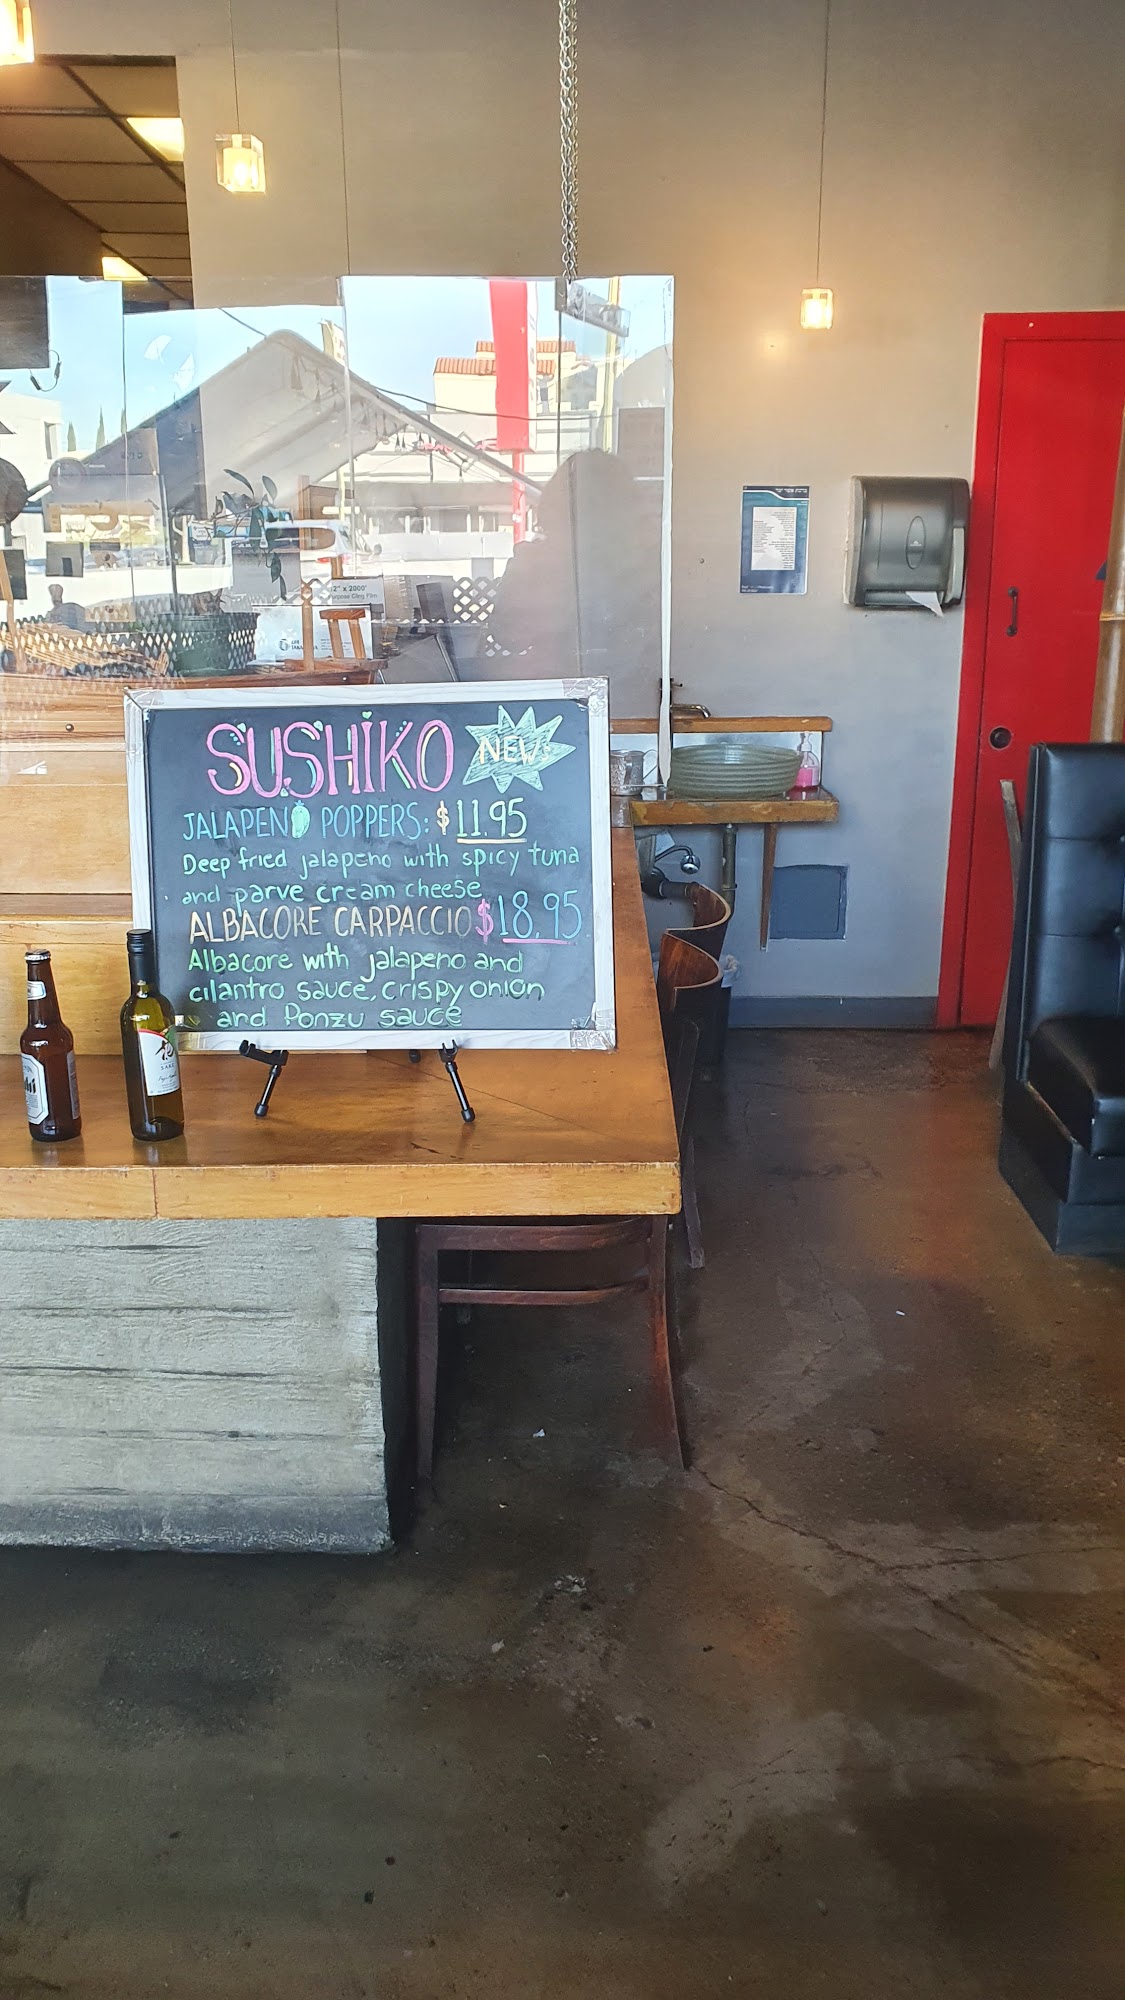 12" x 2000'
Purpose Cling Film
SUSHIKO NEW
JALAPENO POPPERS: $11.95
Deep fried jalapeno with spicy tuna
and parve cream cheese
ALBACORE CARPACCIO $18.95
Albacore with jalapeno and
cilantro sauce, crispy onion
and Ponzu sauce
SAKE